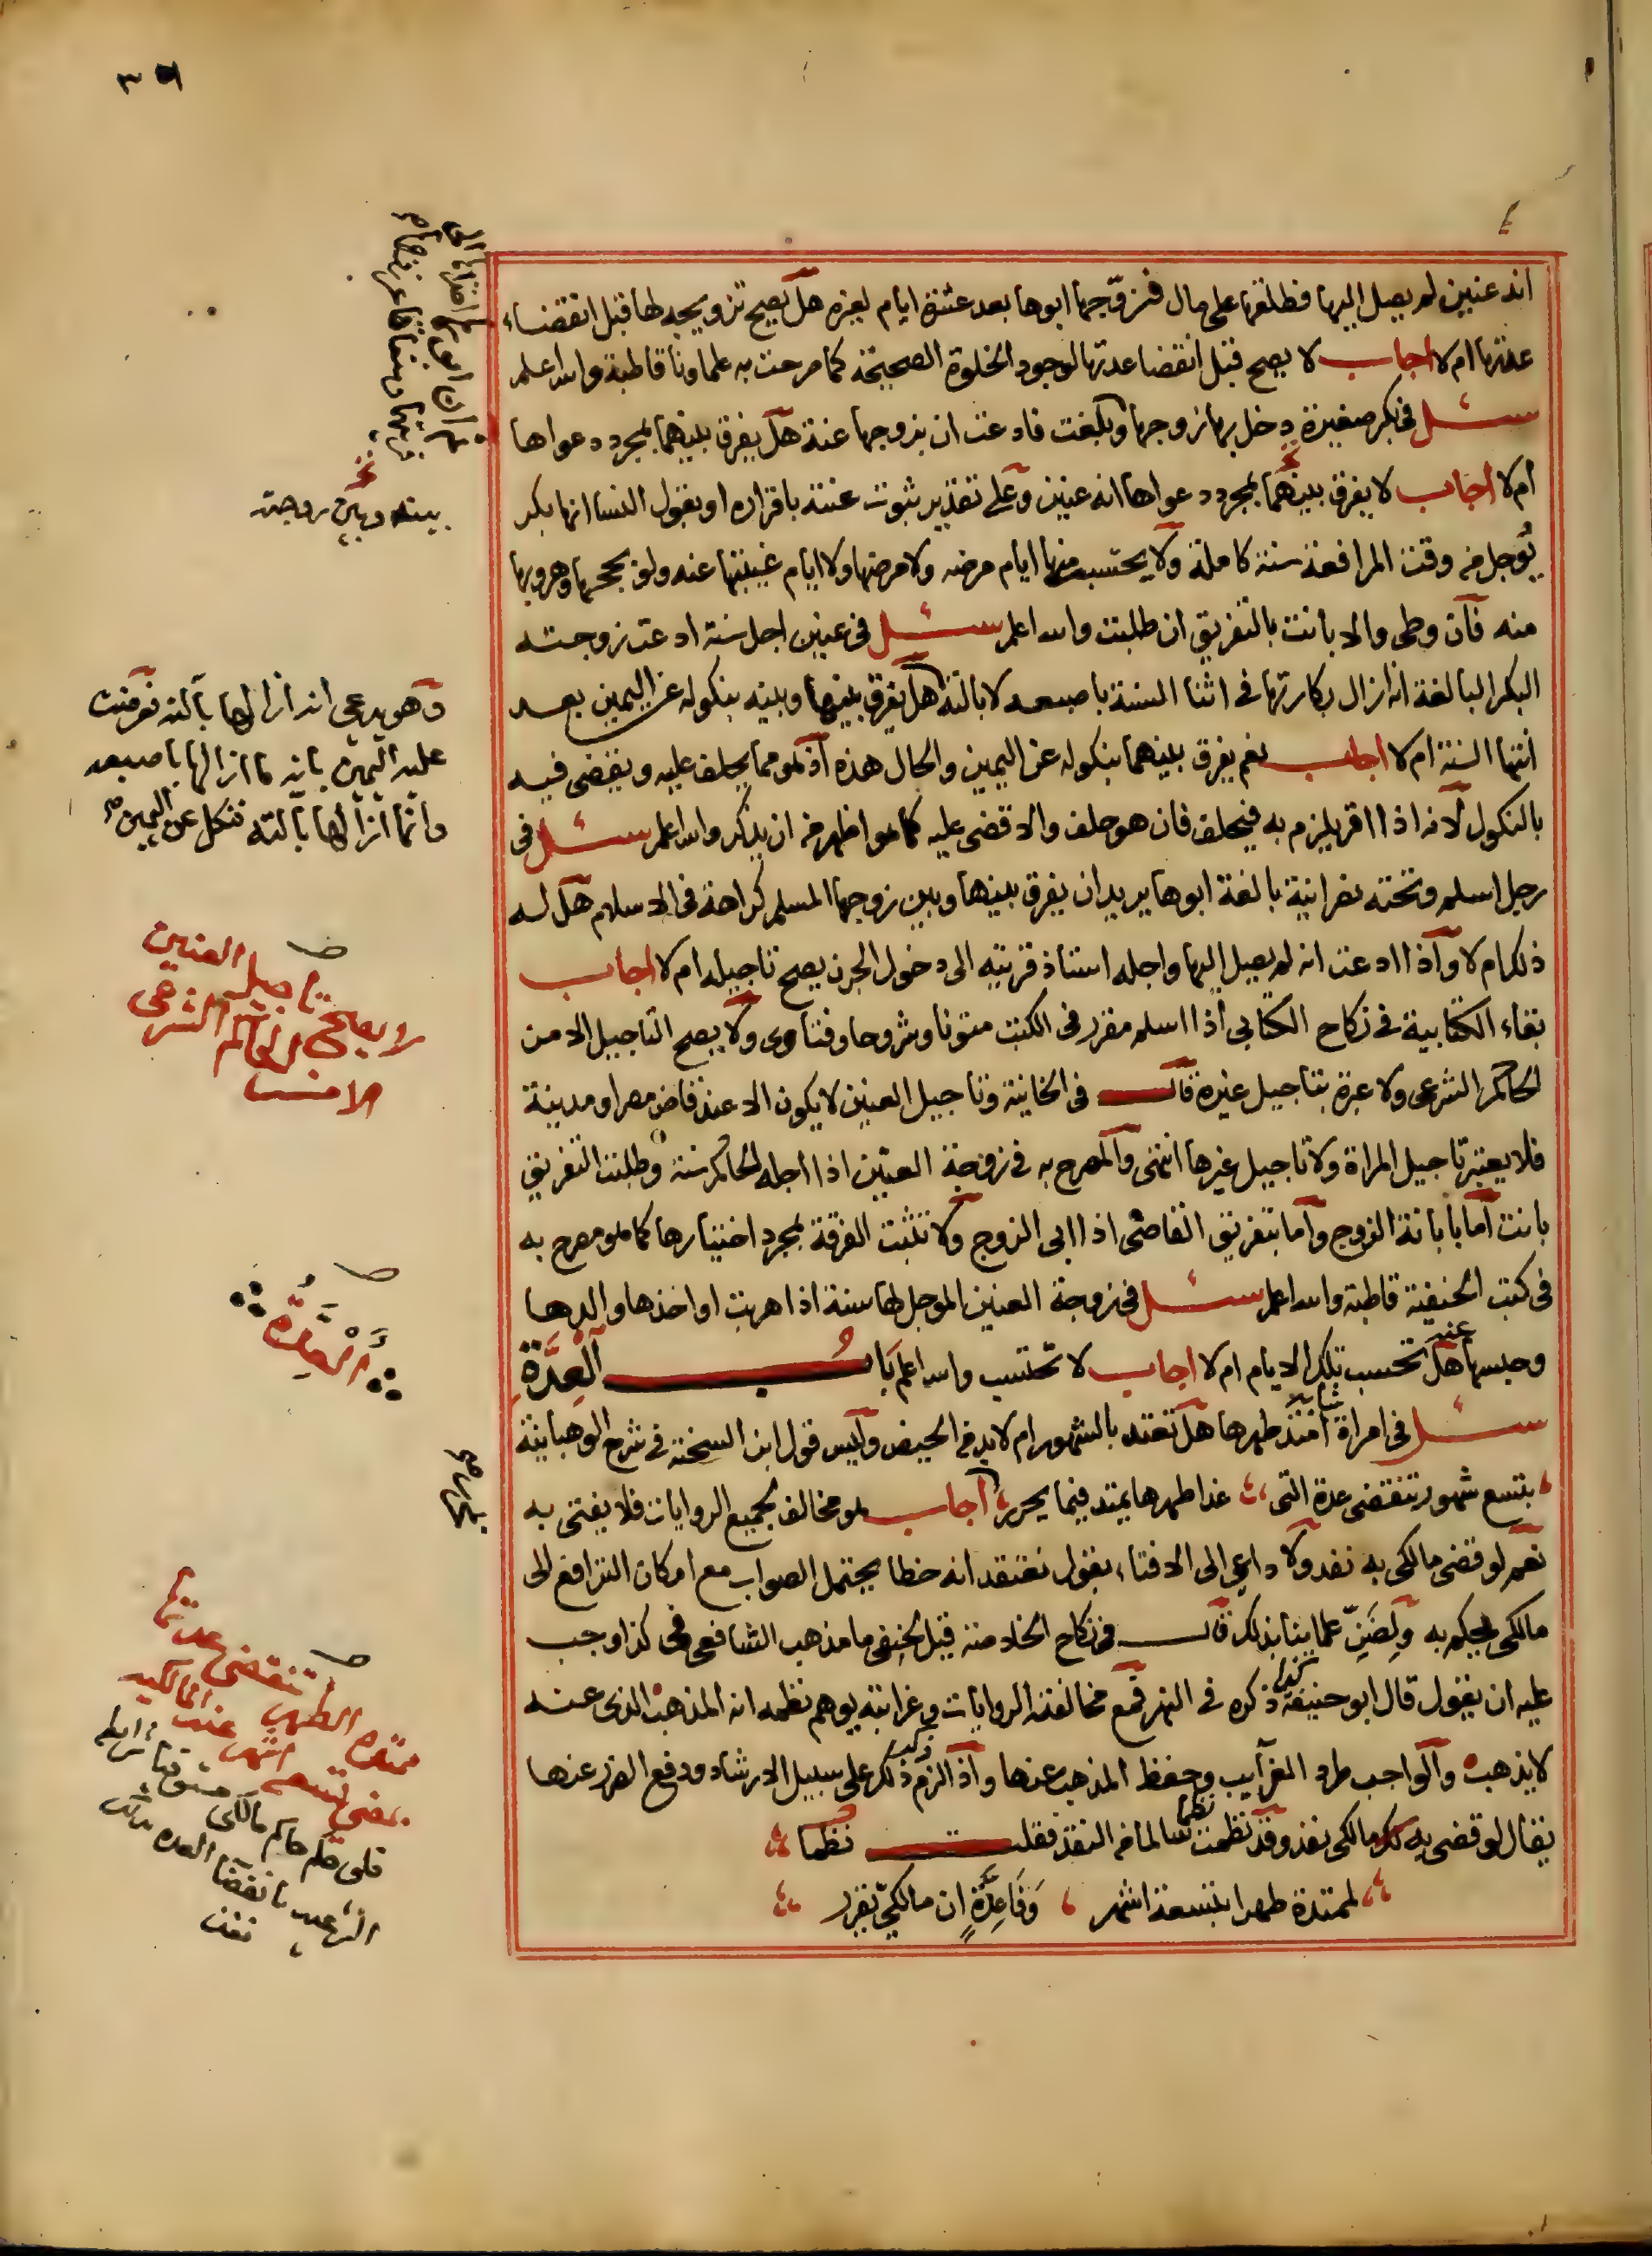 انه عنين لم يصل اليها فطلقها على مال فزوّجها ابوها بعد عشرة ايام لغيره هل يصح تزويجه لها قبل انقضاء
عدتها ام لا اجاب لا يصح قبل انقضا عدتها لوجود الخلوة الصحيحة كما صرحت به علماونا قاطبة والله اعلم
سئل في بكر صغيرة دخل بها زوجها وبلغت فادعت ان بزوجها عنة هل يفرق بينهما بمجرد دعواها
ام لا اجاب لا يفرق بينهما بمجرد دعواها انه عنين وعلى تقدير ثبوت عنته باقراره او بقول النسا انها بكر
يؤجل من وقت المرافعة سنة كاملة ولا يحتسب منها ايام مرضه ولا مرضها ولا ايام غيبتها عنه ولو بحجها وهروبها
منه فان وطى والا بانت بالتفريق ان طلبت والله اعلم سئل في عنين اجل سنة ادعت زوجته
البكر البالغة انه ازال بكارتها في اثنا السنة باصبعه لا بالته هل يفرق بينها وبينه بنكوله عن اليمين بعد
انتها السنة ام لا اجاب نعم يفرق بينهما بنكوله عن اليمين والحال هذه اذ هو مما يحلف عليه ويقضى فيه
بالنكول لانه اذا اقر يلزم به فيحلف فان هو حلف والا قضى عليه كما هو اظهر من ان يذكر والله اعلم سئل في
رجل اسلم وتحته نصرانية بالغة ابوها يريد ان يفرق بينها وبين زوجها المسلم كراهة في الاسلام هل له
ذلك ام لا واذا ادعت انه لم يصل اليها واجله استاذ قريته الى دخول الجرن يصح تاجيله ام لا اجاب
بقاء الكتابية في نكاح الكتابي اذا اسلم مقرر في الكتب متونا وشروحا وفتاوى ولا يصح التاجيل الا من
الحاكم الشرعي ولا عبرة بتاجيل غيره قال في الخانية وتاجيل العنين لا يكون الا عند قاض مصر او مدينة
فلا يعتبر تاجيل المراة ولا تاجيل غيرها انتهى والمصرح به في زوجة العنين اذا اجله الحاكم سنة وطلبت التفريق
بانت اما بابانة الزوج واما بتفريق القاضى اذا ابى الزوج ولا تثبت الفرقة بمجرد اختيارها كما هو مصرح به
في كتب الحنفية قاطبة والله اعلم سئل في زوجة العنين الموجل لها سنة اذا هربت او اخذها والدها
وحبسها عنه هل تحسب تلك الايام ام لا اجاب لا تحتسب والله اعلم باب العدة
سئل في امراة شابة امتد طهرها هل تعتد بالشهور ام لا بد من الحيض وليس قول ابن الشحنة في شرح الوهبانية
بتسع شهور تنقضى عدة التى غدا طهرها يمتد فيما يحرر اجاب هو مخالف لجميع الروايات فلا يفتى به
نعم لو قضى مالكي به نفد ولا داعي الى الافتاء بقول نعتقد انه خطا يحتمل الصواب مع امكان الترافع الى
مالكي يحكم به وقال في نكاح الخلاصة قيل لحنفي ما مذهب الشافعي في كذا وجب
عليه ان يقول قال ابو حنيفة كذا ذكره في النهر فمع مخالفته الروايات وغرابته يوهم نظمه انه المذهب الذي عنه
لا يذهب والواجب طرد الغرايب وحفظ المذهب عنها واذ الزم ذكر ذلك على سبيل الارشاد ودفع الضرر عنها
يقال لو قضى به مالكي نفذ وقد نظمت نظما سالما من النقد فقلت نظما
لممتدة طهرا بتسعة اشهر وفا عدة ان مالكي يقرر
بينه وبين زوجته
وهو يدعي انه ازالها بآلته فعرضت
عليه اليمين بانه ما ازالها باصبعه
وانما ازالها بآلته فنكل عن اليمين صح
لا يصح تاجيل العنين
الا من الحاكم الشرعي
العدة
ممتدة الطهر تنقضى عدتها
بمضي تسعة اشهر عند المالكيه
فلو حكم حاكم مالكي
نفذ